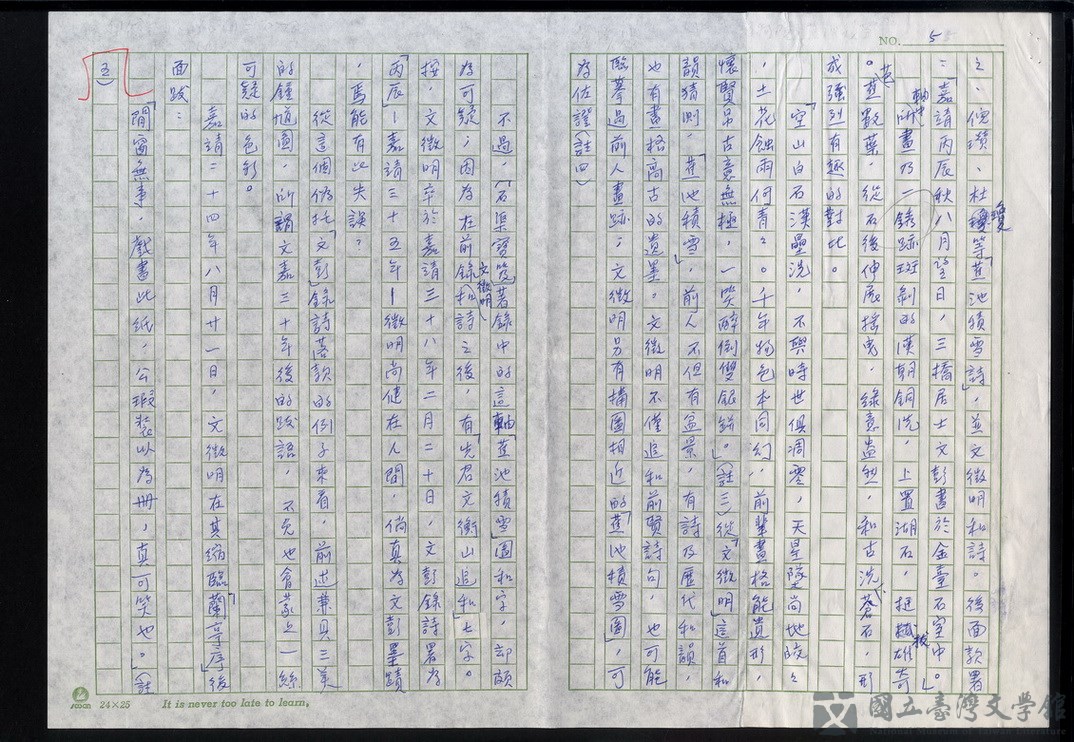 NO. 5
之、倪瓚、杜瓊等「蕉池積雪詩」,並文徵明和詩。後面款署
:「嘉靖丙辰秋八月望日,三橋居士文彭書於金臺石室中。」
軸中所畫乃一銹跡斑剝的漢朝銅洗,上置湖石,挺拔雄奇
。芭蕉數葉,從石後伸展搖曳,綠意盎然,和古洗、蒼石,形
成強烈有趣的對比。
「空山白石漢壘洗,不與時世俱凋零,天星墜尚地皎々
,土花蝕雨何青々。千年物色本同幻,前輩畫格能遺形,
懷賢吊古意無極,一笑醉倒雙銀缾。」(註三)從「文徵明」這首和
韻猜測,「蕉池積雪」,前人不但有盆景,有詩及歷代和韻,
也有畫格高古的遺墨。文徵明不僅追和前賢詩句,也可能
臨摹過前人畫跡;文徵明另有構圖相近的「蕉池積雪圖」,可
為佐證(註四)
不過,「石渠寶笈」著錄中的這軸「蕉池積雪」圖和字,卻頗
為可疑,因為在前錄文徵明和詩之後,有「先君文衡山追和」七字。
按,文徵明卒於嘉靖三十八年二月二十日,文彭錄詩署為
「丙辰」—嘉靖三十五年—徵明尚健在人間,倘真為文彭墨蹟
,焉能有此失誤?
從這個偽托「文彭」錄詩落款的例子來看,前述兼具三美
的鍾馗圖,所謂文嘉三十年後的跋語,不免也會蒙上一絲
可疑的色彩。
嘉靖二十四年八月廿一日,文徵明在其縮臨「蘭亭序」後
面跋:
「閒窗無事,戲書此紙,公瑕裝以為冊,真可笑也。」(註
五)
24×25
It is never too late to learn.
國立臺灣文學館
National Museum of Taiwan Literature